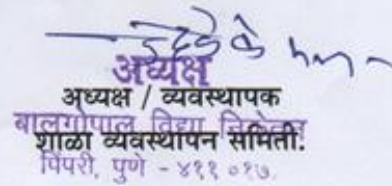 अध्यक्ष
अध्यक्ष / व्यवस्थापक
बालगोपाल विद्या निकेतन
शाळा व्यवस्थापन समिती.
पिंपरी, पुणे - ४११ ०१७.